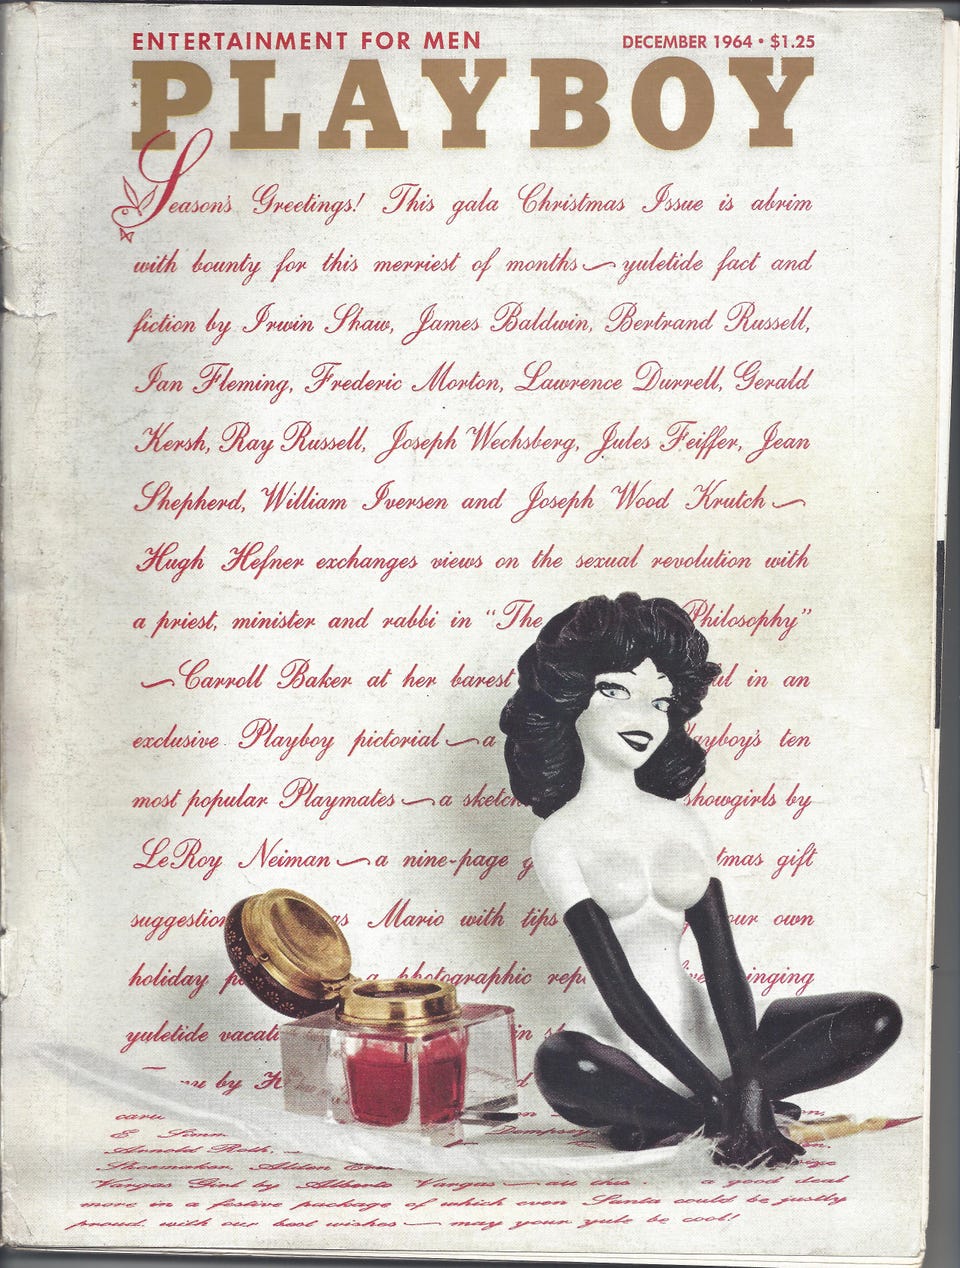 ENTERTAINMENT FOR MEN
DECEMBER 1964 • $1.25
PLAYBOY
Season's Greetings! This gala Christmas Issue is abrim
with bounty for this merriest of months~yuletide fact and
fiction by Irwin Shaw, James Baldwin, Bertrand Russell,
Ian Fleming, Frederic Morton, Lawrence Durrell, Gerald
Kersh, Ray Russell, Joseph Wechsberg, Jules Feiffer, Jean
Shepherd, William Iversen and Joseph Wood Krutch~
Hugh Hefner exchanges views on the sexual revolution with
a priest, minister and rabbi in "The Philosophy"
~Carroll Baker at her barest in an
exclusive Playboy pictorial~a layboy's ten
most popular Playmates~a sketch showgirls by
LeRoy Neiman~a nine-page g tmas gift
suggestion as Mario with tips our own
holiday p a photographic rep inging
yuletide vacati in s
by
Dempsey
Arnold Roth,
Shoemaker, Alden
Vargas Girl by Alberto Vargas~all this a good deal
more in a festive package of which even Santa could be justly
proud. with our best wishes~may your yule be cool!